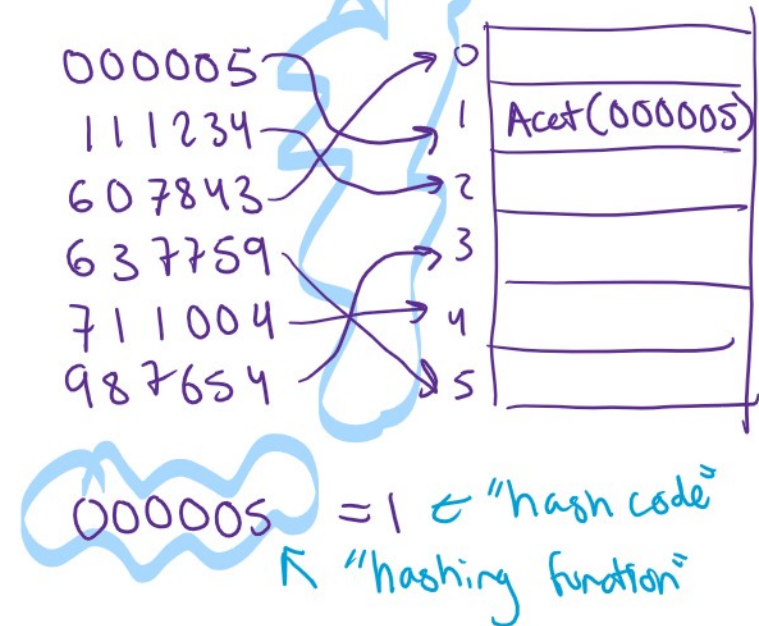 000005
111234
607843
637759
711004
987654
0
1 Acct(000005)
2
3
4
5
000005 = 1 ← "hash code"
↖ "hashing function"